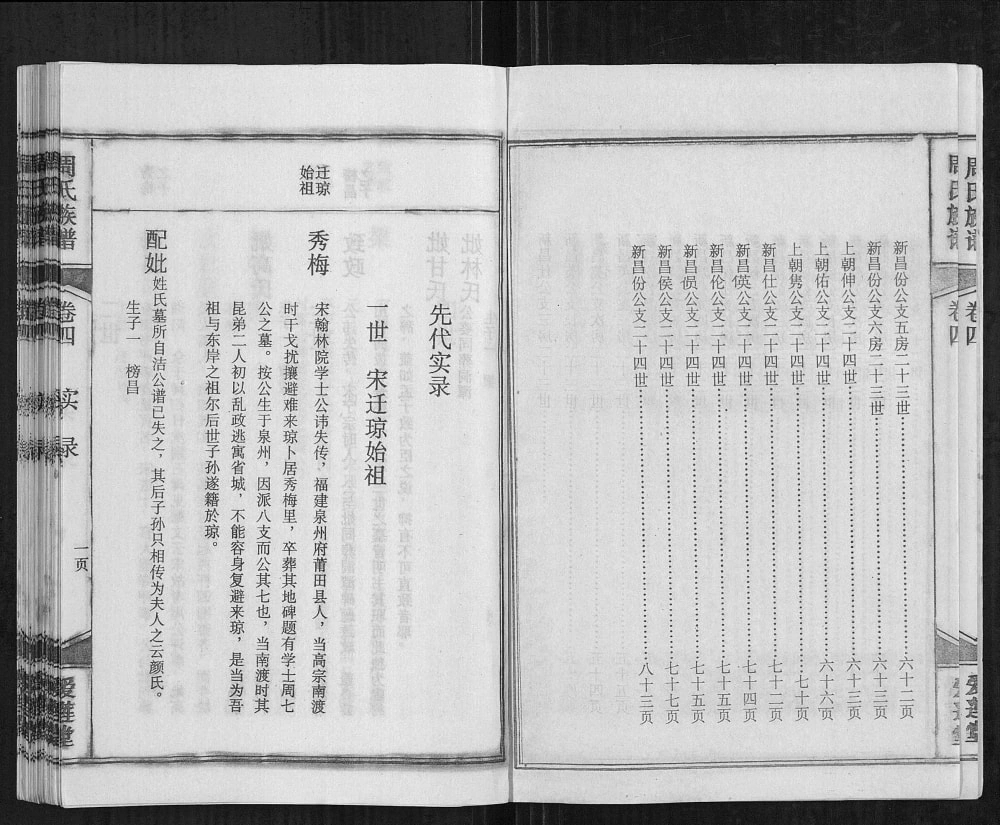 周氏族谱
卷四
爱莲堂
新昌份公支五房二十三世……六十二页
新昌份公支六房二十三世……六十三页
上朝伸公支二十四世……六十三页
上朝佑公支二十四世……六十六页
上朝隽公支二十四世……七十页
新昌仕公支二十四世……七十二页
新昌偀公支二十四世……七十四页
新昌伦公支二十四世……七十五页
新昌侯公支二十四世……七十七页
新昌份公支二十四世……八十三页
先代实录
一世 宋迁琼始祖
迁琼
始祖
秀梅
宋翰林院学士公讳失传，福建泉州府莆田县人，当高宗南渡
时干戈扰攘避难来琼卜居秀梅里，卒葬其地碑题有学士周七
公之墓。按公生于泉州，因派八支而公其七也，当南渡时其
昆弟二人初以乱政逃寓省城，不能容身复避来琼，是当为吾
祖与东岸之祖尔后世子孙遂籍於琼。
配妣姓氏墓所自洁公谱已失之，其后子孙只相传为夫人之云颜氏。
生子一 榜昌
周氏族谱
卷四
实录
一页
爱莲堂